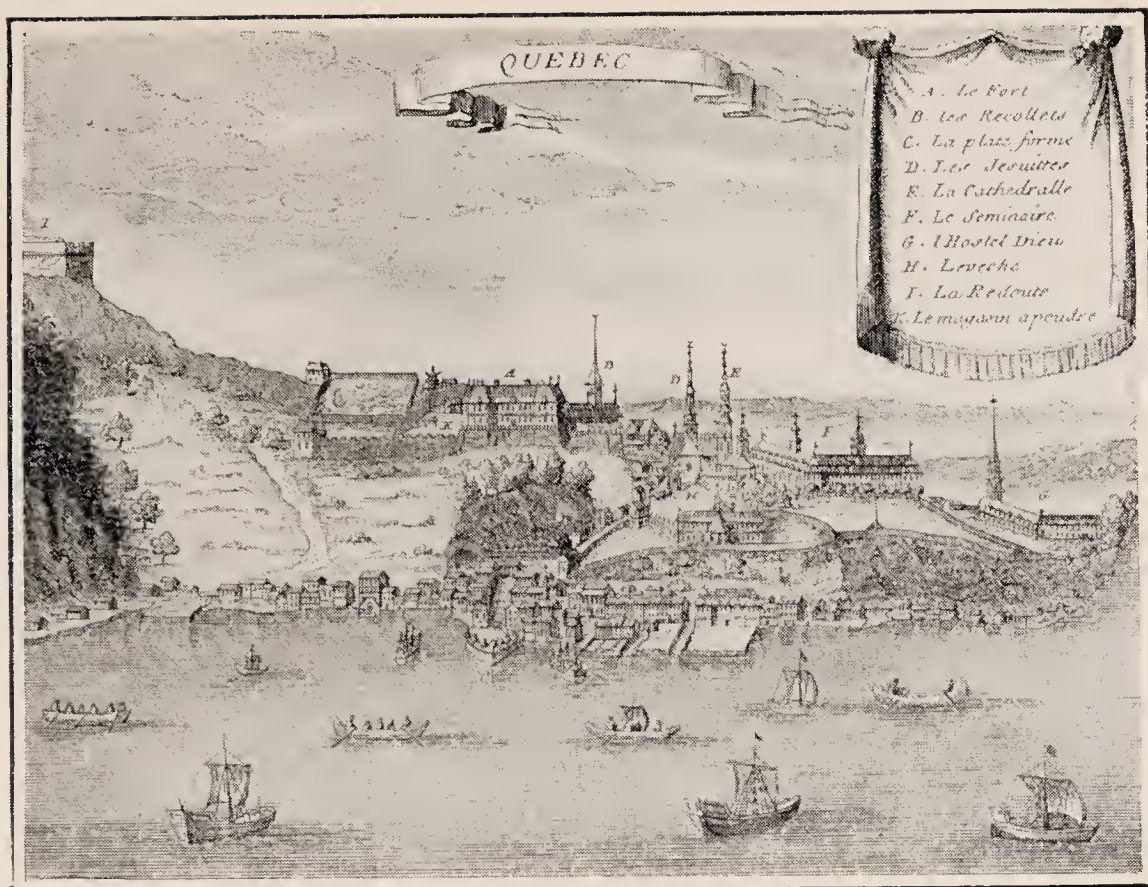 QUEBEC
A. Le Fort
B. les Recollets
C. La plate forme
D. Les Jesuittes
E. La Cathedralle
F. Le Seminaire
G. l Hostel Dieu
H. Leveche
I. La Redoute
K. Le magasin a poudre
I
A
B
D
E
K
F
H
G